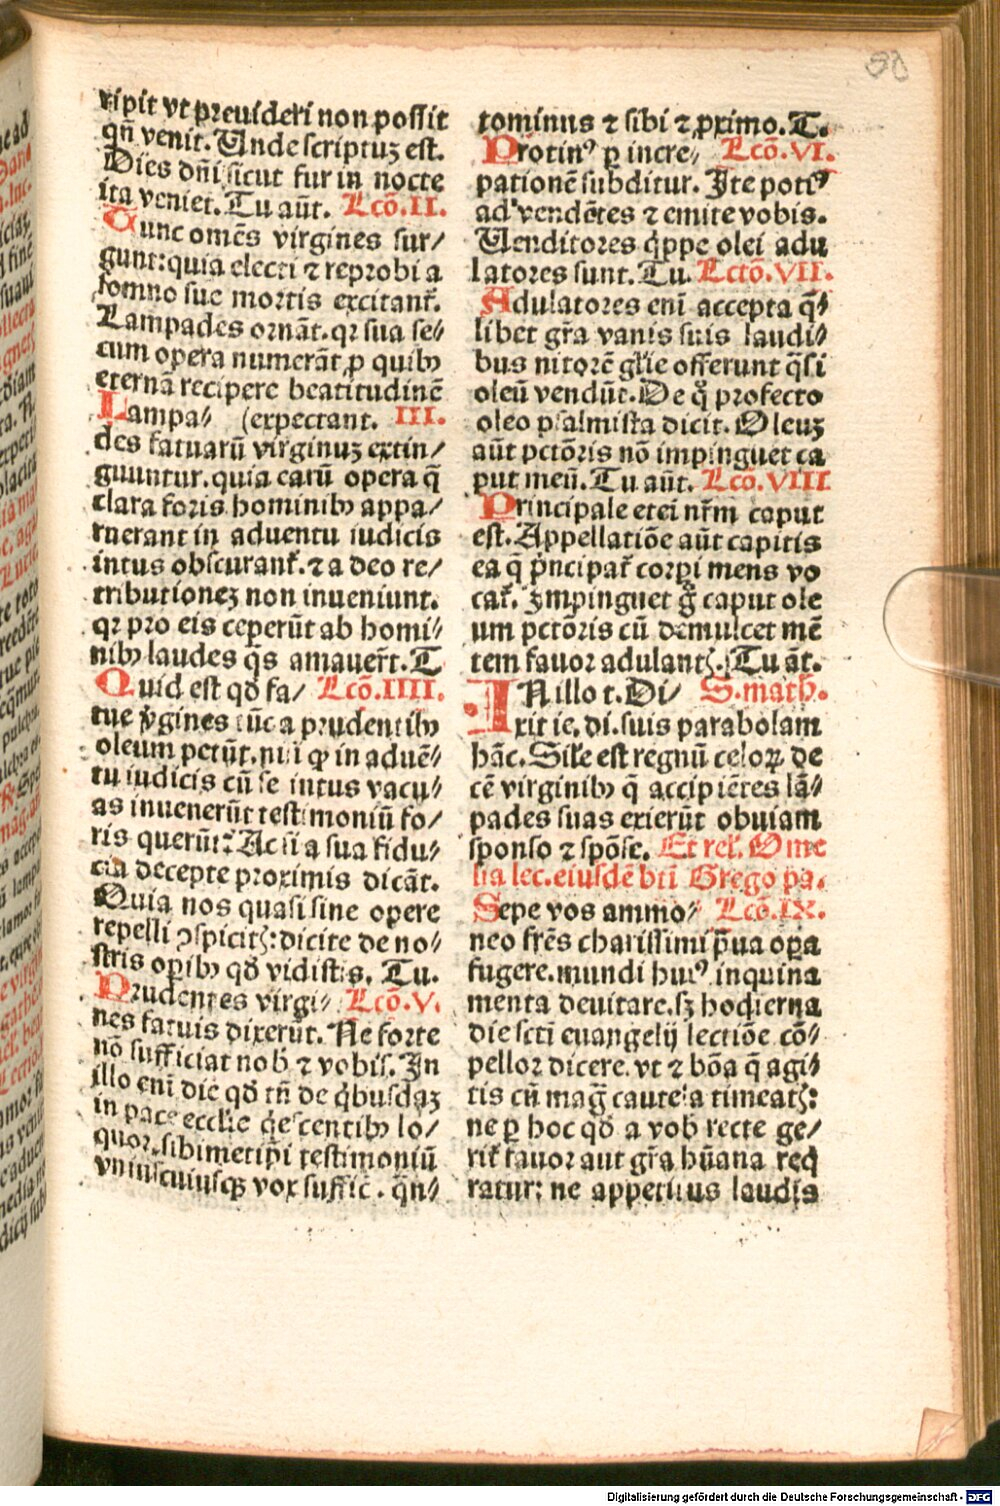 ripit vt preuideri non possit
qñ venit. Unde scriptuʒ est.
Dies dñi sicut fur in nocte
ita veniet. Tu aūt. Lcō.II.
Tunc omēs virgines sur/
gunt: quia electi ⁊ reprobi a
somno sue mortis excitantˀ.
Lampades ornāt. qꝛ sua se/
cum opera numerāt, ꝓ quibꝰ
eternā recipere beatitudinē
Lampa/ (expectant. III.
des fatuarū virginuʒ extin/
guuntur. quia earū opera q̄
clara foris hominibꝰ appa/
ruerant in aduentu iudicis
intus obscurantˀ. ⁊ a deo re/
tributioneʒ non inueniunt.
qꝛ pro eis ceperūt ab homi/
nibꝰ laudes q̄s amauer̄t. T
Quid est qď fa/ Lcō.IIII.
tue v̓gines tūc a prudentibꝰ
oleum petūt. nisi ꝙ in aduē/
tu iudicis cū se intus vacu/
as inuenerūt testimoniū fo/
ris querūt? Ac si a sua fidu/
cia decepte proximis dicāt.
Quia nos quasi sine opere
repelli ꝯspicitꝭ: dicite de no/
stris oꝑibꝰ qď vidistis. Tu.
Prudentes virgi/ Lcō.V.
nes fatuis dixerūt. Ne forte
nō sufficiat nob̄ ⁊ vobis. In
illo enī die qď tn̄ de q̓busdaʒ
in pace ecclie q̓escentibꝰ lo/
quor. sibimetip̄i testimoniū
vniuscuiusqꝫ vox suffic̄. q̄n/
tominus ⁊ sibi ⁊ ꝓximo. T.
Protinꝰ ꝑ incre/ Lcō.VI.
pationē subditur. Ite potiꝰ
ad vendētes ⁊ emite vobis.
Uenditores q̓ppe olei adu
latores sunt. Tu. Lctō.VII.
Adulatores enī accepta q̄/
libet gr̄a vanis suis laudi/
bus nitorē gl̄ie offerunt q̄si
oleū vendūt. De q̊ profecto
oleo psalmista dicit. Oleuʒ
aūt pctōris nō impinguet ca
put meū. Tu aūt. Lcō.VIII
Principale eteī nr̄m caput
est. Appellatiōe aūt capitis
ea q̄ p̓ncipatˀ corpi mens vo
catˀ. Impinguet g̊ caput ole
um pctōris cū demulcet mē
tem fauor adulantꝭ. Tu āt.
IN illo t. Di/ S. math.
xit ie. di. suis parabolam
hāc. Sile est regnū celoꝝ de
cē virginibꝰ q̄ accipiētes lā/
pades suas exierūt obuiam
sponso ⁊ spōse. Et rel. Ome
lia lec. eiusdē btī Grego pa.
Sepe vos ammo/ Lcō.IX.
neo fr̄es charissimi p̄ua oꝑa
fugere. mundi huiꝰ inquina
menta deuitare. sʒ hodierna
die scti euangelij lectiōe cō/
pellor dicere. vt ⁊ bōa q̄ agi/
tis cū mag̅ cautela timeatꝭ:
ne ꝑ hoc qď a vob̄ recte ge/
ritˀ fauor aut gr̄a hūana req̓
ratur: ne appetitus laudis
Digitalisierung gefördert durch die Deutsche Forschungsgemeinschaft - DFG